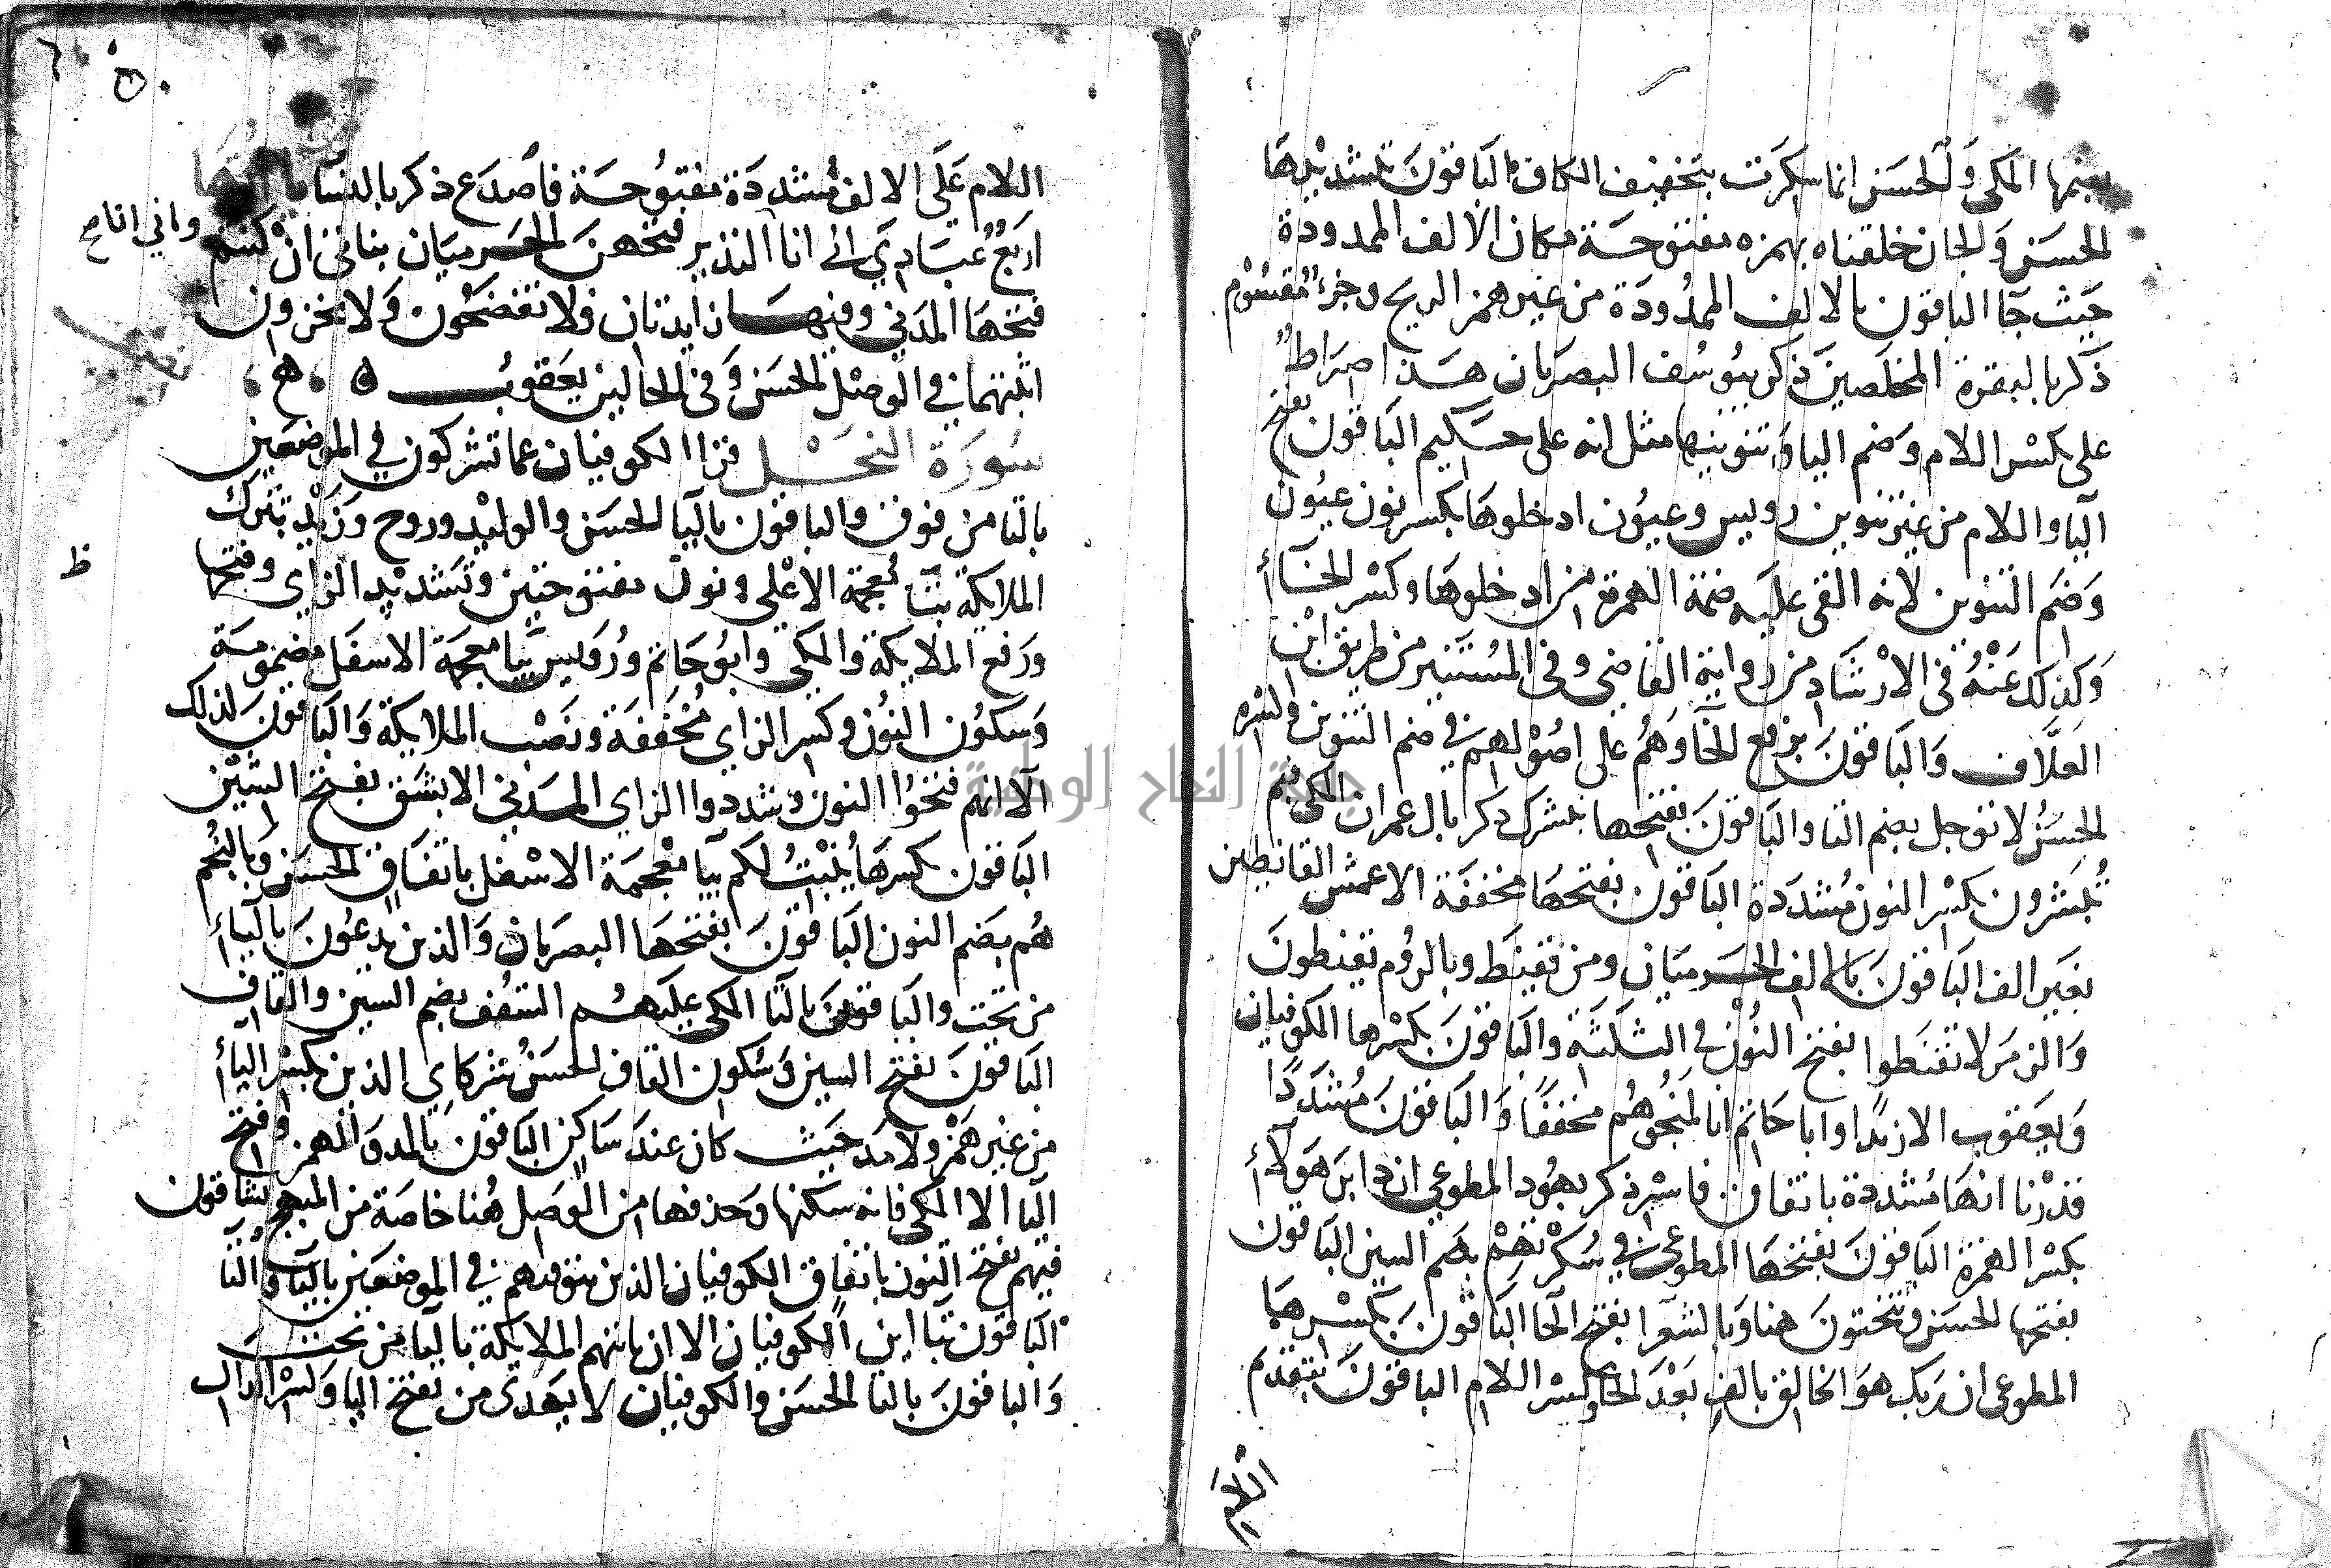 بضمها المكي وَالحسَن انما سكرت بتخفيف الكاف البَاقونَ بتشديْدهَا
الحسَن وَالجان خلقناه بهمزه مفتوحَة مكان الالف الممدودة
حيَث جَا الباقون بالالف الممدُودَة من غير همز الريح وجزء مُقسُوْم
ذكر بالبقرة المخلَصينَ ذكر بيوسُف البصريان هَذا صرَاط
على بكسْر اللام وَضم اليا وَتنوينها مثل انه على حَكيم البَاقون بفتح
اليَا واللام من غير تنوين رويس وعيُون ادخلوهَا بكسر نون عيُون
وَضم التنوين لانه القى عليَه ضمة الهمرة من ادخلوهَا وكسْر الخَاء
وَكذلك عَنْهُ في الارْشَاد من روَاية القاضي وفي المُسْتَنير من طريق ابْن
العَلَّاف وَالبَاقونَ برفع الخَا وَهُم على اصُوْلهم في ضم التنوين وكسْره
الحسَنُ لا توجل بضم التا والبَاقونَ بفتحها نبشرك ذكر بال عمران المكي فبم
تُبشرون بكسْر النون مُشددة البَاقون بفتحهَا مخففَة الاعمش القانطين
بغَير الف البَاقونَ بالالف الحَرميَان ومن يقنَط وبالرؤم يقنطونَ
وَالزمَر لا تقنَطوا بفتح النُوْن في الثلَثَة والبَاقونَ بكسْرها الكوفيان
وَيعَقوب الا زيدًا وابا حَاتم انا لمنجُوهُم مخففًا وَالبَاقونَ مُشَدَدًا
قدرْنا انهَا مُشددة باتفاق فاسْر ذكر بهُود المطوعي ان دابرَ هَولاء
بكسْر الهمزة البَاقونَ بفتحهَا المطوعي في سُكرتهمْ بضم السين البَاقون
بفتحها الحسَن وتنحتونَ هنا وَبالشعَرا بفتح الحَا البَاقونَ بكسْرهَا
المطوعي ان ربك هوَ الخَالق بالف بَعْدَ الخا وكسْر اللام البَاقونَ بتقدم
اللام
اللام عَلَى الالف مُشددَة مفتوُحَة فاصْدَع ذكر بالنسَا
اربَعُ عبَادِي انى انا النذير فتحهن الحَرميَان بناتى ان كنتم
وانى انا صح
فتحَهَا المدَني وفيهَا زايدتان فلا تفضحُون وَلا تخزون
اثبتهما في الوصْل الحسَن وَفي الحَالين يعَقوبُ
سُورَة النحْل قرا الكوفيان عما تشركون في الموضعَين
بالتا من فوق والباقون باليَا الحسَن والوليْد وروح وَزَيْد تنَزل
الملايكة بتَا مُعجمة الاعْلى ونون مفتوحتين وتشديْد الزاي وفتحها
ورَفع الملايكة والمكي وابوُ حَاتم ورُوَيس بيَا معجَمة الاسفَل مضمومَة
وَسكوُن النوُن وكسر الزاي مُخفَفَة ونصْب الملايكَة وَالبَاقونَ لذلك
الا انهم فتحُوا النون وشددوا الزاي المدَني الا بشق بفتح الشيْن
البَاقون بكسرهَا يُنْبتُ لكم بيَا معْجَمَة الاسْفل باتفَاق الحسَن وَبالنُجم
هُم بضَم النون البَاقونَ بفتحهَا البصرَيان وَالذين يدعُونَ باليَاء
من تحت والبَاقونَ بالتا المكي عليَهم السُقُف بضم السين والقاف
البَاقونَ بفتح السين وَسُكون القاف الحسَنُ شركاي الذين بكسْر اليَاء
من غير هَمْز ولا مَد حَيث كان عندَ سَاكن البَاقونَ بالمد وَالهَمز وفتح
اليَا الا المكي فانه سَكنها وَحذفها من الوَصل هُنا خاصَة من المبهج تشاقون
فيهم بفتح النون باتفاق الكوفيان الذين يتوفاهم في الموضعَين باليَا وَالتَا
البَاقون بتا اين الكوفيان الا ان ياتيهم الملايكة باليا من تحتَ
وَالباقونَ بالتا الحسَن والكوفيان لا يهَدى من بفتح اليا وَكسْر الدال
ظ